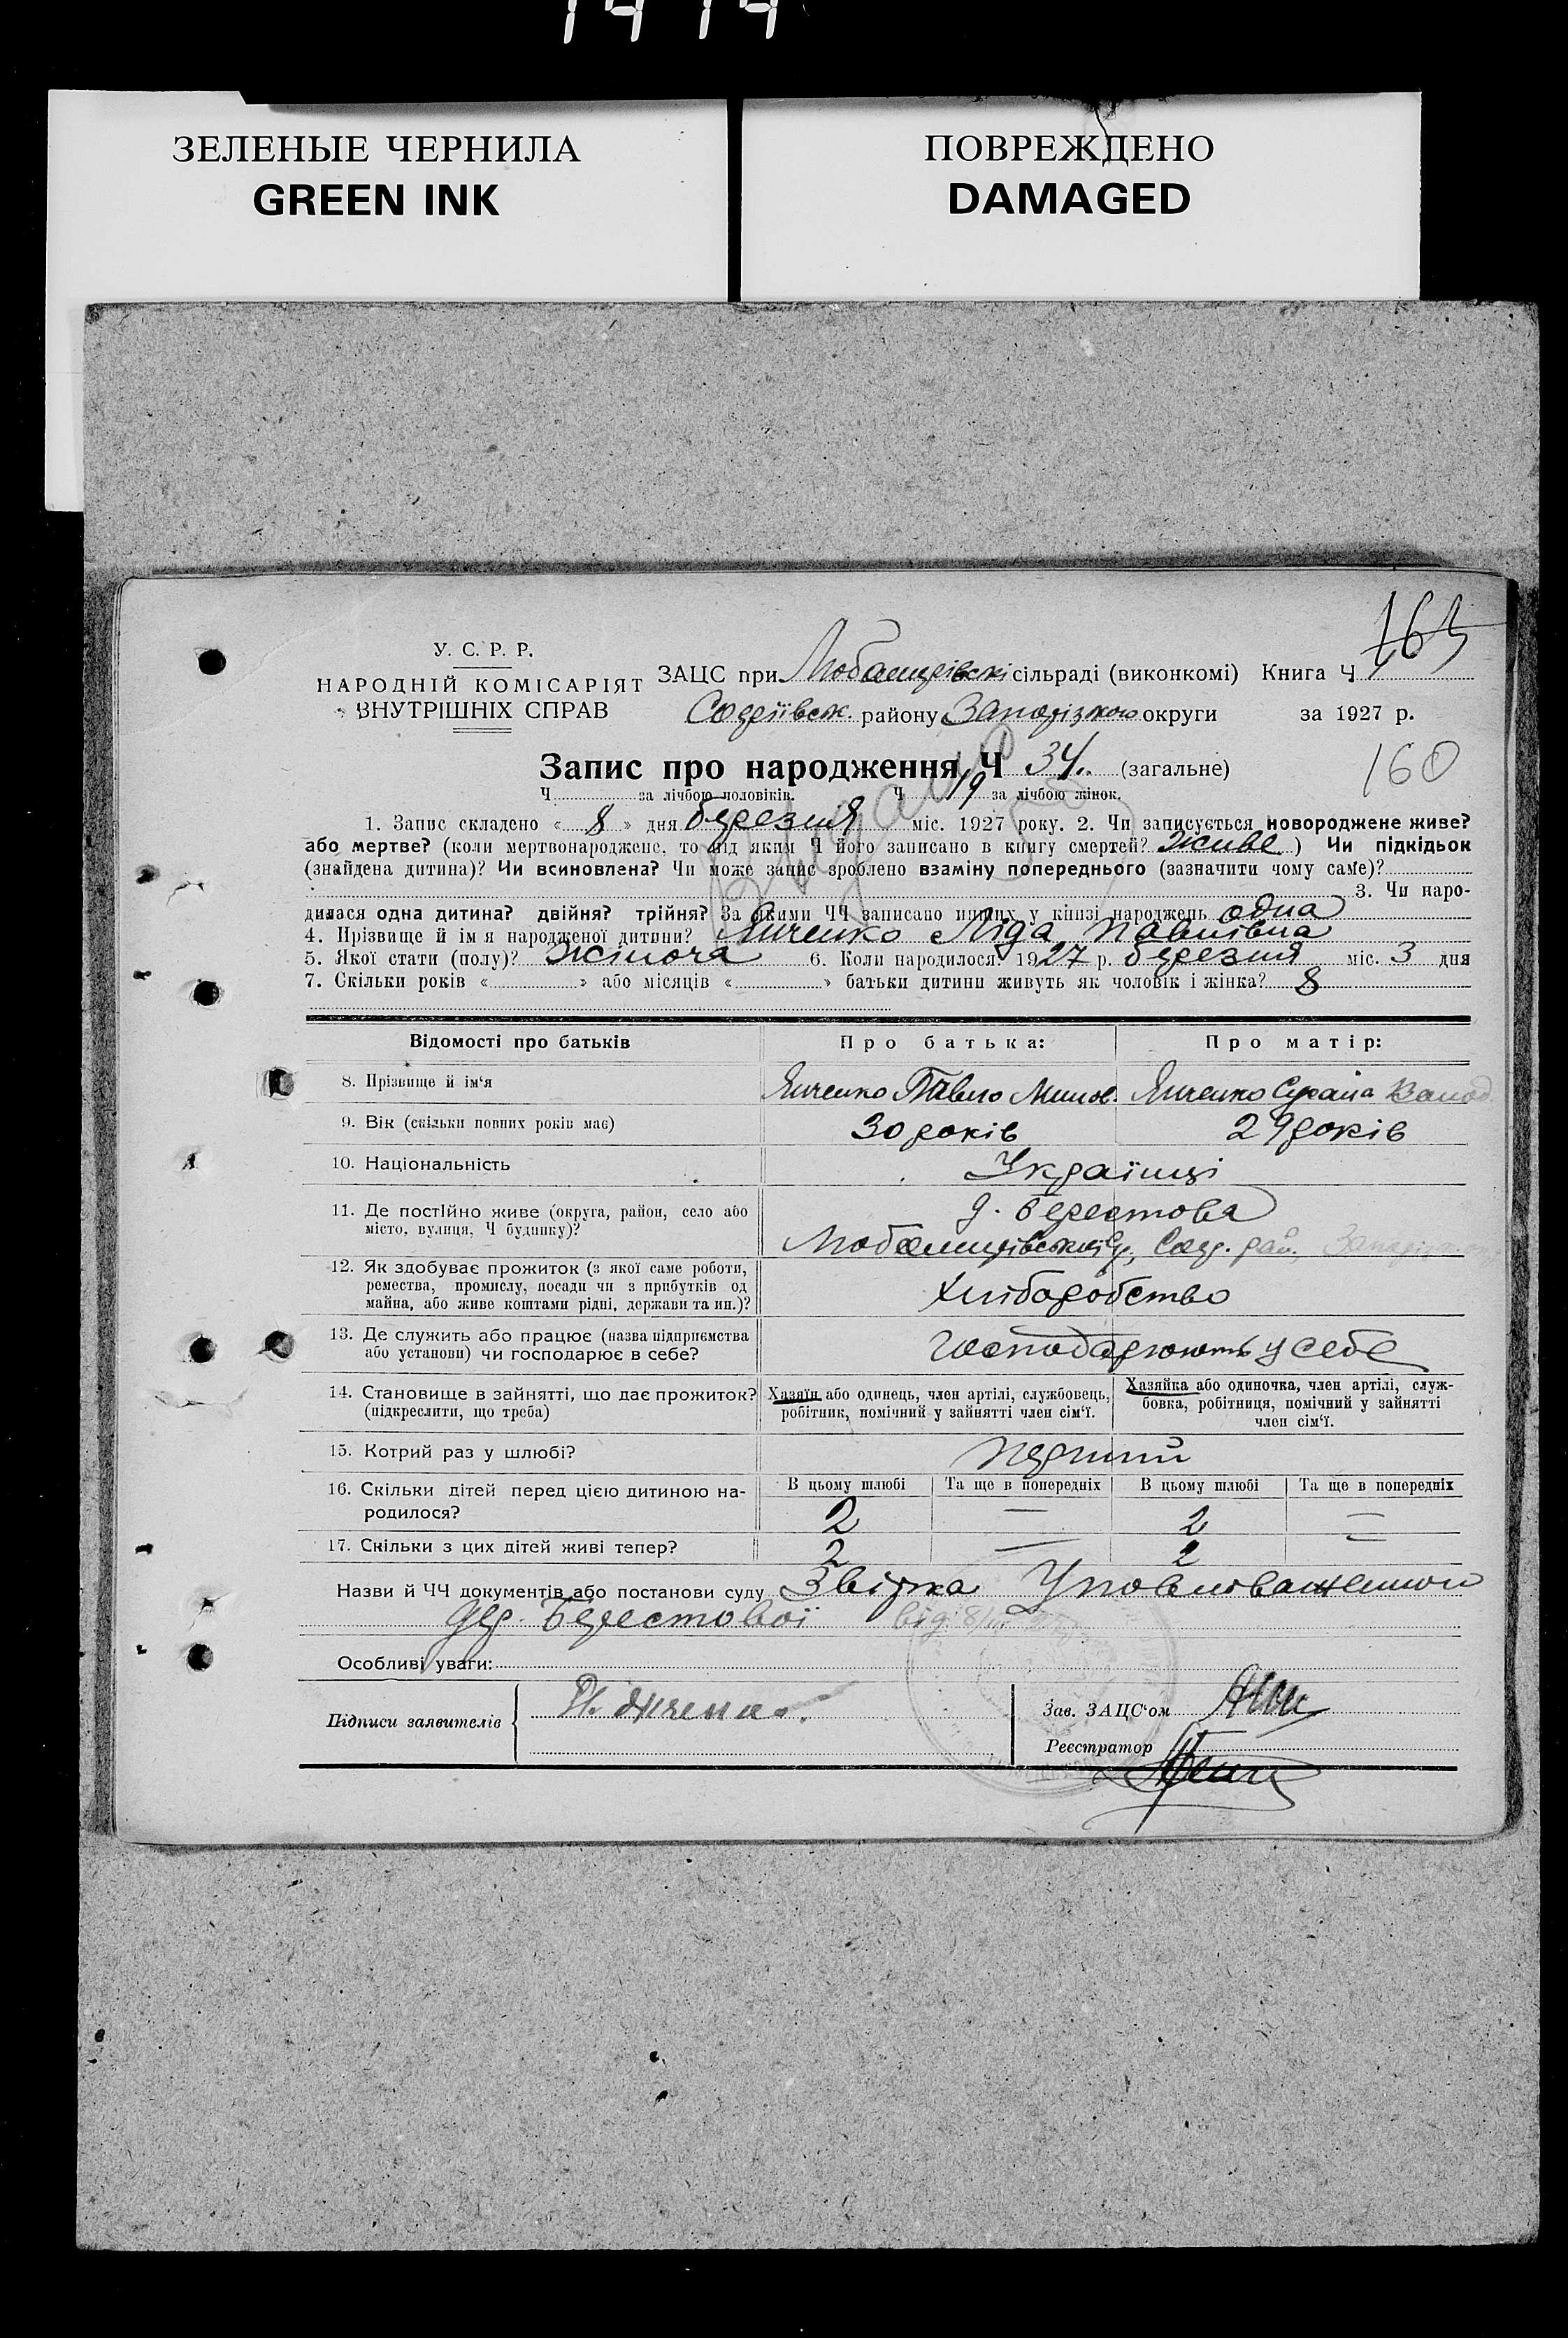 1414
ЗЕЛЕНЫЕ ЧЕРНИЛА
GREEN INK
ПОВРЕЖДЕНО
DAMAGED
У. С. Р. Р.
НАРОДНІЙ КОМІСАРІЯТ
ВНУТРІШНІХ СПРАВ
165
ЗАЦС при сільраді (виконкомі) Книга Ч
району Запорізької округи за 1927 р.
Запис про народження Ч 34. (загальне)
160
Ч за лічбою чоловіків. Ч 19 за лічбою жінок.
1. Запис складено « 8 » дня березня міс. 1927 року. 2. Чи записується новороджене живе?
або мертве? (коли мертвонароджене, то під яким Ч його записано в книгу смертей? живе ) Чи підкідьок
(знайдена дитина)? Чи всиновлена? Чи може запис зроблено взаміну попереднього (зазначити чому саме)?
3. Чи наро-
дилася одна дитина? двійня? трійня? За якими ЧЧ записано инших у книзі народжень одна
4. Прізвище й ім я народженої дитини? Янченко Ліда Павлівна
5. Якої стати (полу)? жіноча 6. Коли народилося? 1927 р. березня міс. 3 дня
7. Скільки років « » або місяців « » батьки дитини живуть як чоловік і жінка? 8
Відомості про батьків Про батька: Про матір:
8. Прізвище й ім‘я Янченко Павло Янченко
9. Вік (скільки повних років має) 30 років 29 років
10. Національність Українці
11. Де постійно живе (округа, район, село або
місто, вулиця, Ч будинку)?
д. Берестова
12. Як здобуває прожиток (з якої саме роботи,
ремества, промислу, посади чи з прибутків од
майна, або живе коштами рідні, держави та ин.)?
Хліборобство
13. Де служить або працює (назва підприємства
або установи) чи господарює в себе?
господарюють у себе
14. Становище в зайнятті, що дає прожиток?
(підкреслити, що треба)
Хазяїн або одинець, член артілі, службовець,
робітник, помічний у зайнятті член сім‘ї.
Хазяйка або одиночка, член артілі, служ-
бовка, робітниця, помічний у зайнятті
член сім‘ї.
15. Котрий раз у шлюбі? перший
В цьому шлюбі Та ще в попередніх В цьому шлюбі Та ще в попередніх
16. Скільки дітей перед цією дитиною на-
родилося?
2 — 2 —
17. Скільки з цих дітей живі тепер? 2 — 2
Назви й ЧЧ документів або постанови суду Звірка Уповноваженного
дер. Берестової від 8/III
Особливі уваги:
Підписи заявителів
Зав. ЗАЦС‘ом
Реєстратор